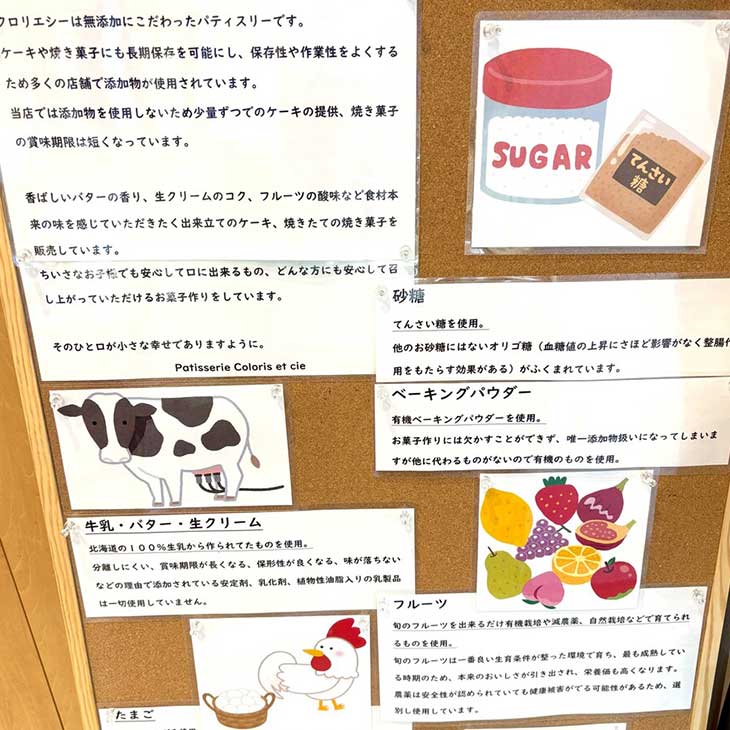 ロリエシーは無添加にこだわったパティスリーです。
ケーキや焼き菓子にも長期保存を可能にし、保存性や作業性をよくする
ため多くの店舗で添加物が使用されています。
当店では添加物を使用しないため少量ずつでのケーキの提供、焼き菓子
の賞味期限は短くなっています。
香ばしいバターの香り、生クリームのコク、フルーツの酸味など食材本
来の味を感じていただきたく出来立てのケーキ、焼きたての焼き菓子を
販売しています。
ちいさなお子様でも安心して口に出来るもの、どんな方にも安心して召
し上がっていただけるお菓子作りをしています。
そのひと口が小さな幸せでありますように。
Patisserie Coloris et cie
SUGAR
てんさい
糖
砂糖
てんさい糖を使用。
他のお砂糖にはないオリゴ糖（血糖値の上昇にさほど影響がなく整腸作
用をもたらす効果がある）がふくまれています。
ベーキングパウダー
有機ベーキングパウダーを使用。
お菓子作りには欠かすことができず、唯一添加物扱いになってしまいま
すが他に代わるものがないので有機のものを使用。
牛乳・バター・生クリーム
北海道の１００％生乳から作られてたものを使用。
分離しにくい、賞味期限が長くなる、保形性が良くなる、味が落ちない
などの理由で添加されている安定剤、乳化剤、植物性油脂入りの乳製品
は一切使用していません。
フルーツ
旬のフルーツを出来るだけ有機栽培や減農薬、自然栽培などで育てられ
るものを使用。
旬のフルーツは一番良い生育条件が整った環境で育ち、最も成熟してい
る時期のため、本来のおいしさが引き出され、栄養価も高くなります。
農薬は安全性が認められていても健康被害がでる可能性があるため、選
別し使用しています。
たまご